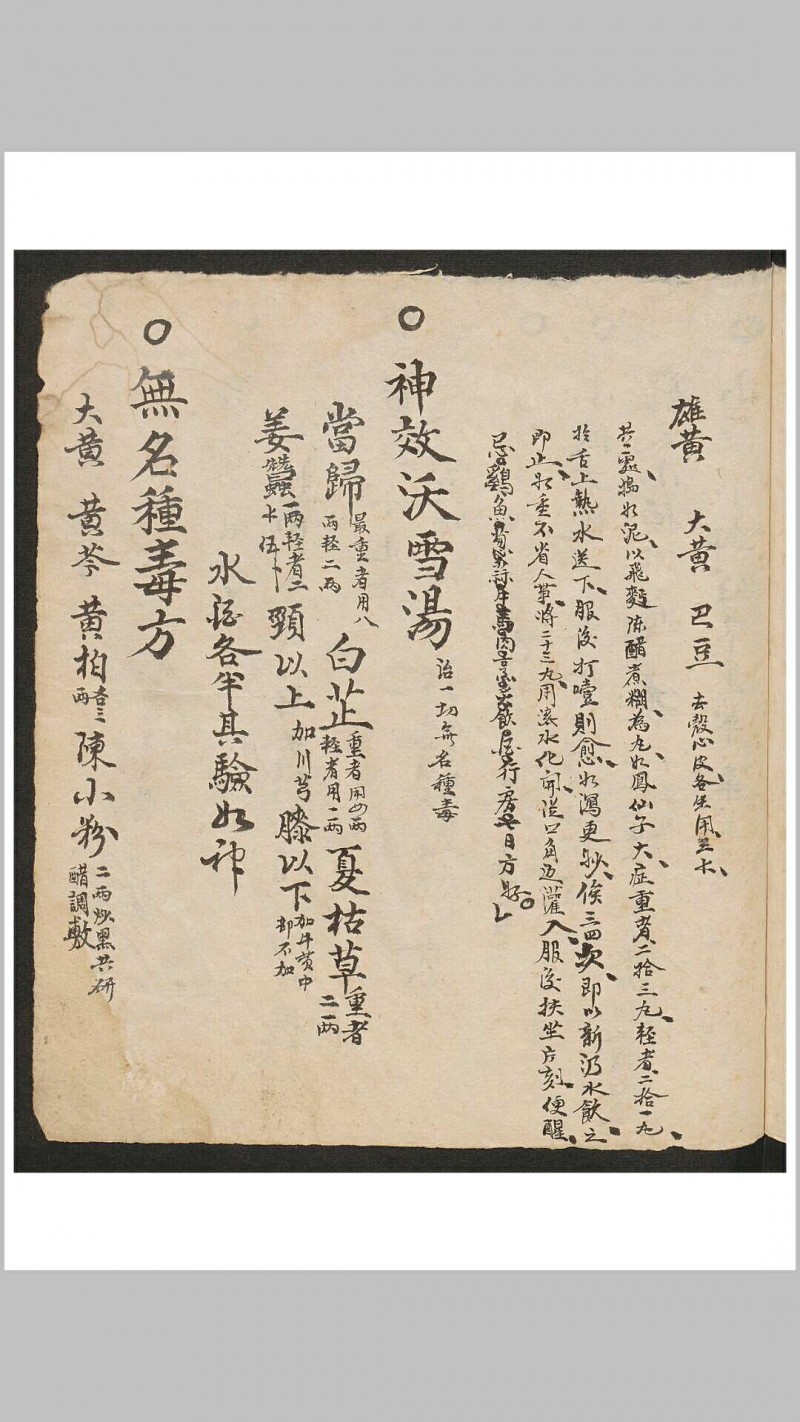 雄黃 大黃 巴豆 去殼心皮各生用三才
共搗如泥以飛麵陳醋煮糊為丸如鳳仙子大症重者二拾三丸輕者二拾一丸
於舌上熱水送下服後打噎則愈如瀉更妙俟三四次即以新汲水飲之
即止如重不省人事將二十三丸用滾水化開從口角邊灌入服後扶坐片刻便醒
忌鷄魚行房七日方好
神效沃雪湯 治一切無名種毒
當歸 最重者用八兩輕二兩 白芷 重者用四兩輕者用二兩 夏枯草 重者二兩
姜蠶 一兩輕者二才伍卜 頸以上 加川芎 膝以下 加牛黃中部不加
水酒各半其驗如神
無名種毒方
大黃 黃芩 黃柏 各三兩 陳小粉 二兩炒黑共研醋調敷